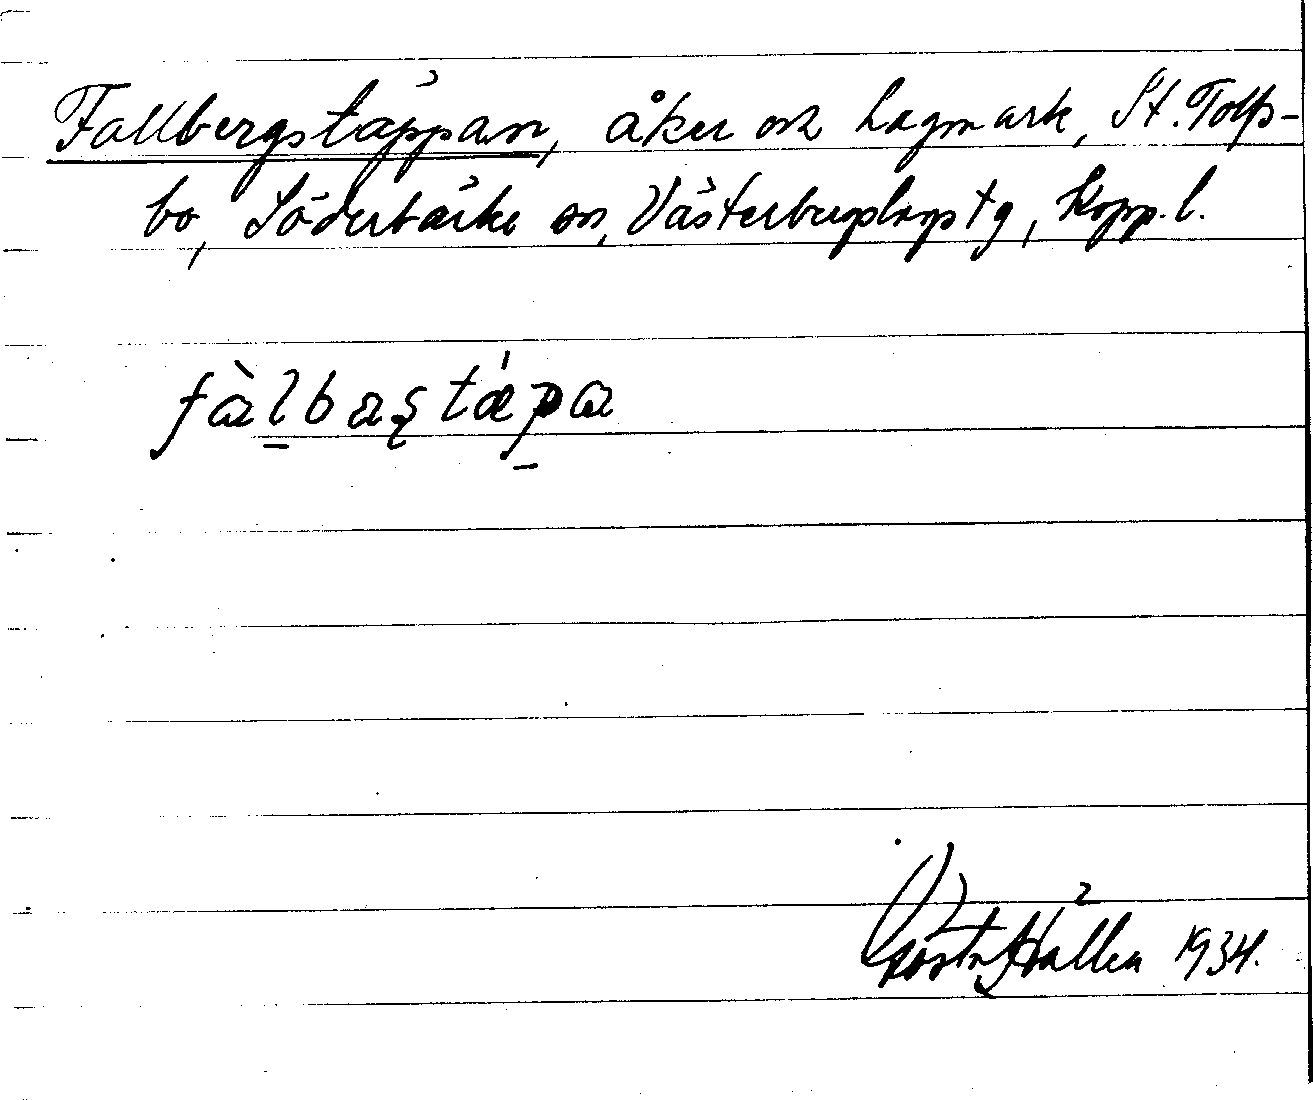 Fallbergstäppan, åker och hagmark, St. Tolfs-
bo, Söderbärke sn, Västerbergslags tg, Kopp. l.
fàlbaʂtǽpa
Gösta Hallén 1934.